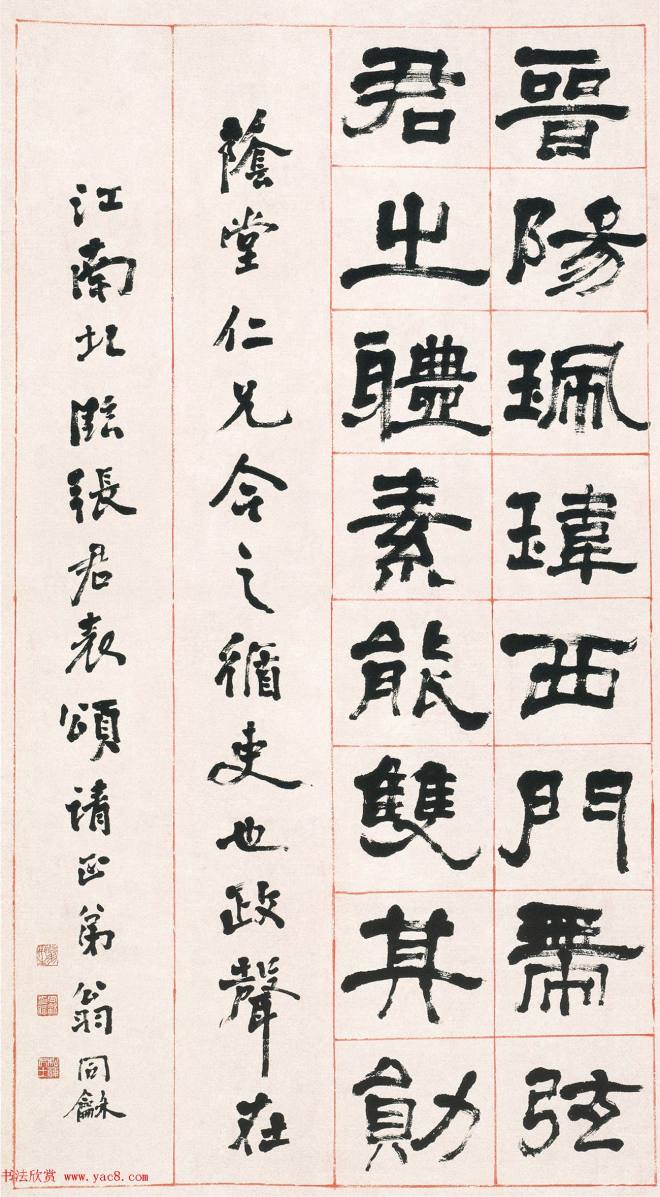 晉陽珮瑋西門帶弦
君之體素能雙其勛
蔭堂仁兄今之循吏也政聲在
江南北臨張君表頌請正弟翁同龢
书法欣赏 www.yac8.com